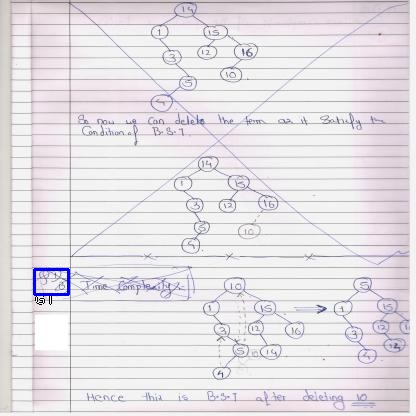 14
1 15
3 12 16
5 10
4
So now we can delete the term as it satisfy the
Condition of B.S.T.
14
1 15
3 12 16
5 10
4
Time Complexity:
10 5
1 15 1 15
3 12 16 3 12
5 14 4
4
Hence this is B.S.T after deleting 10